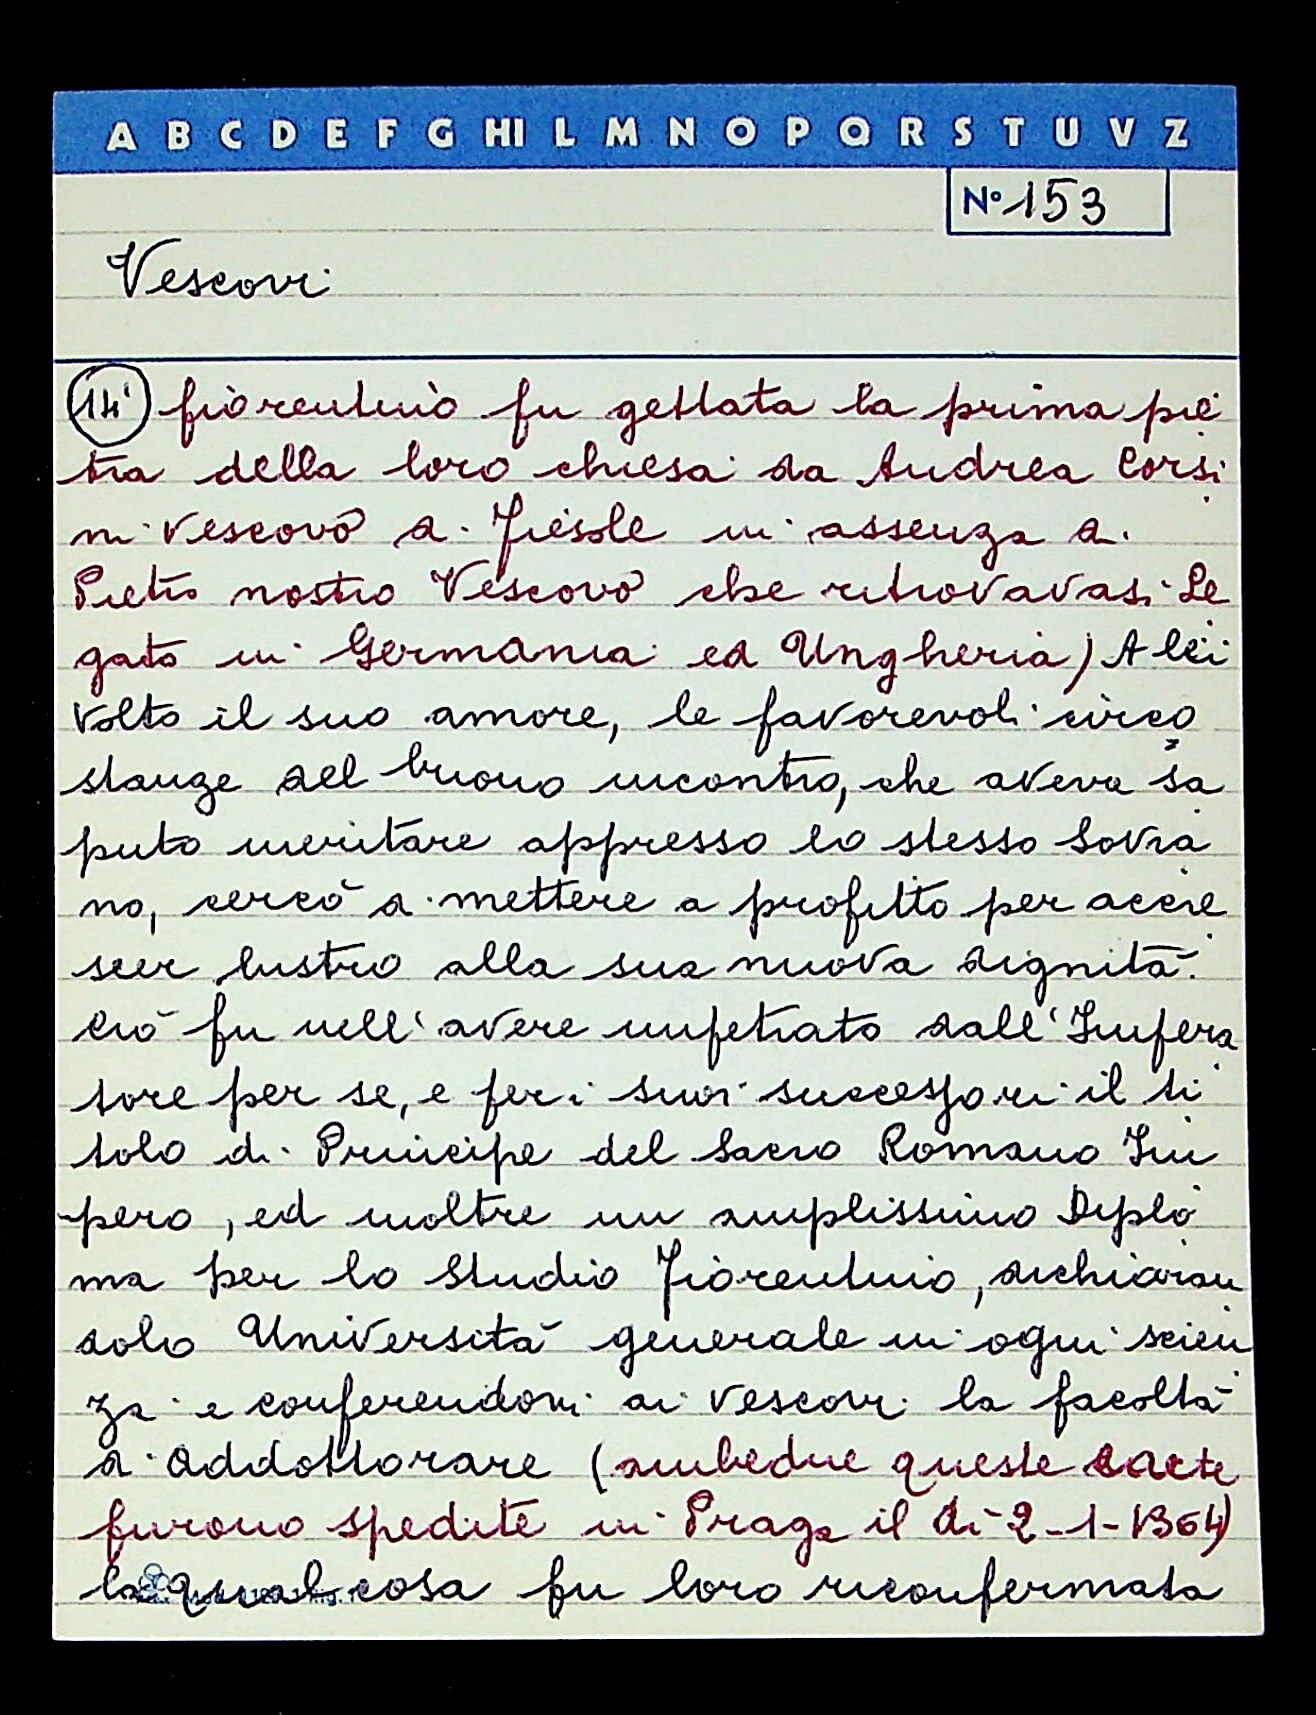 A B C D E F G HI L M N O P Q R S T U V Z
N° 153
Vescovi
14' fiorentino fu gettata la prima pie
tra della loro chiesa da Andrea Corsi
ni Vescovo di Fiesole in assenza di
Pietro nostro Vescovo che ritrovavasi Le
gato in Germania ed Ungheria) A lei
volto il suo amore, le favorevoli circo
stanze del buono incontro, che aveva sa
puto meritare appresso lo stesso Sovra
no, cercò di mettere a profitto per accre
scer lustro alla sua nuova dignità.
Ciò fu nell'avere impetrato dall'Impera
tore per se, e per i suoi successori il ti
tolo di Principe del Sacro Romano Im
pero, ed inoltre un amplissimo Diplo
ma per lo Studio Fiorentino, dichiaran
dolo Università generale in ogni scien
za e conferendoni ai Vescovi la facoltà
di addottorare (ambedue queste carte
furono spedite in Praga il dì 2-1-1364)
la qual cosa fu loro riconfermata